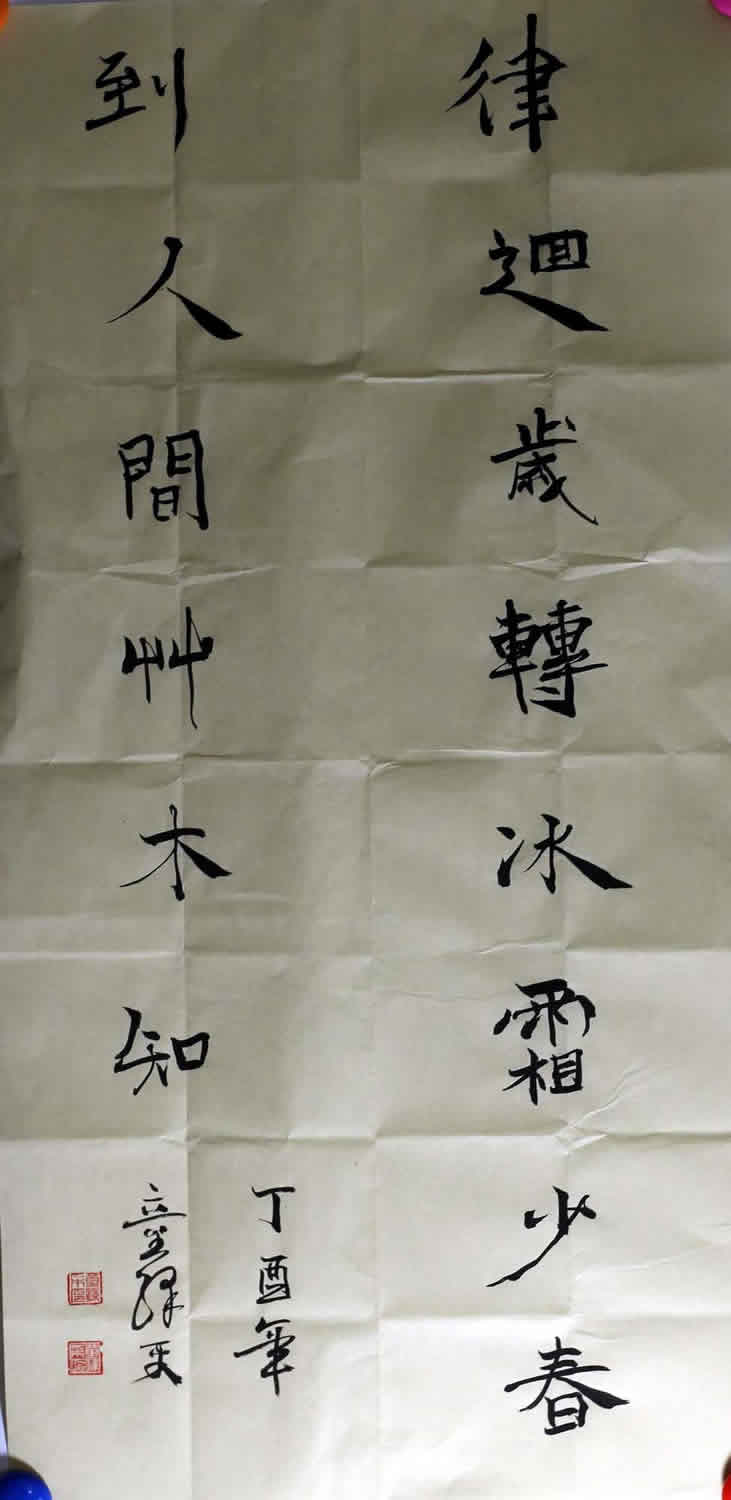 律迴歲轉冰霜少春
到人間艸木知
丁酉年